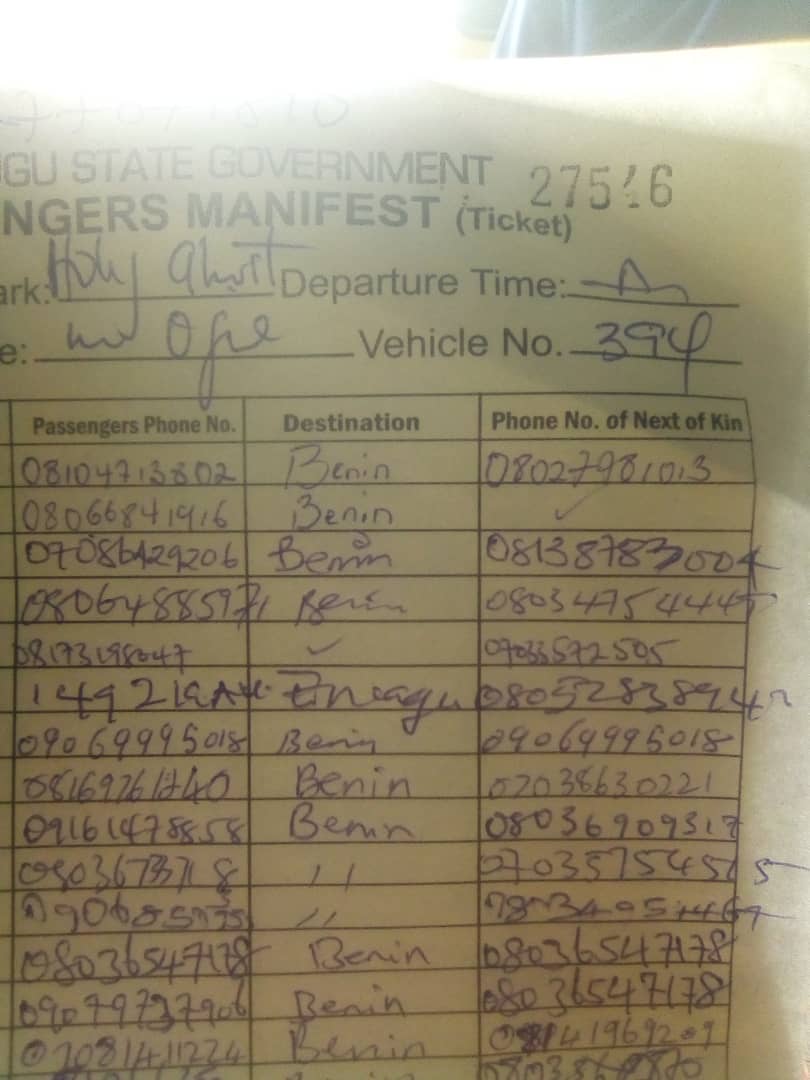 GU STATE GOVERNMENT
NGERS MANIFEST (Ticket) 27546
ark: Holy Ghost Departure Time:
e: Vehicle No. 394
Passengers Phone No. Destination Phone No. of Next of Kin
08104713802 Benin 08027981013
08066841916 Benin ✓
07086429206 Benin 08138783004
08064885971 Benin 08034754447
08173198047 ✓ 07033572505
09069995018 Benin 09069995018
08169261740 Benin 07038630221
09161478858 Benin 08036909317
0803673718 ,, 
,,
08036547178 Benin 08036547178
09079737906 Benin 08036547178
07081411224 Benin